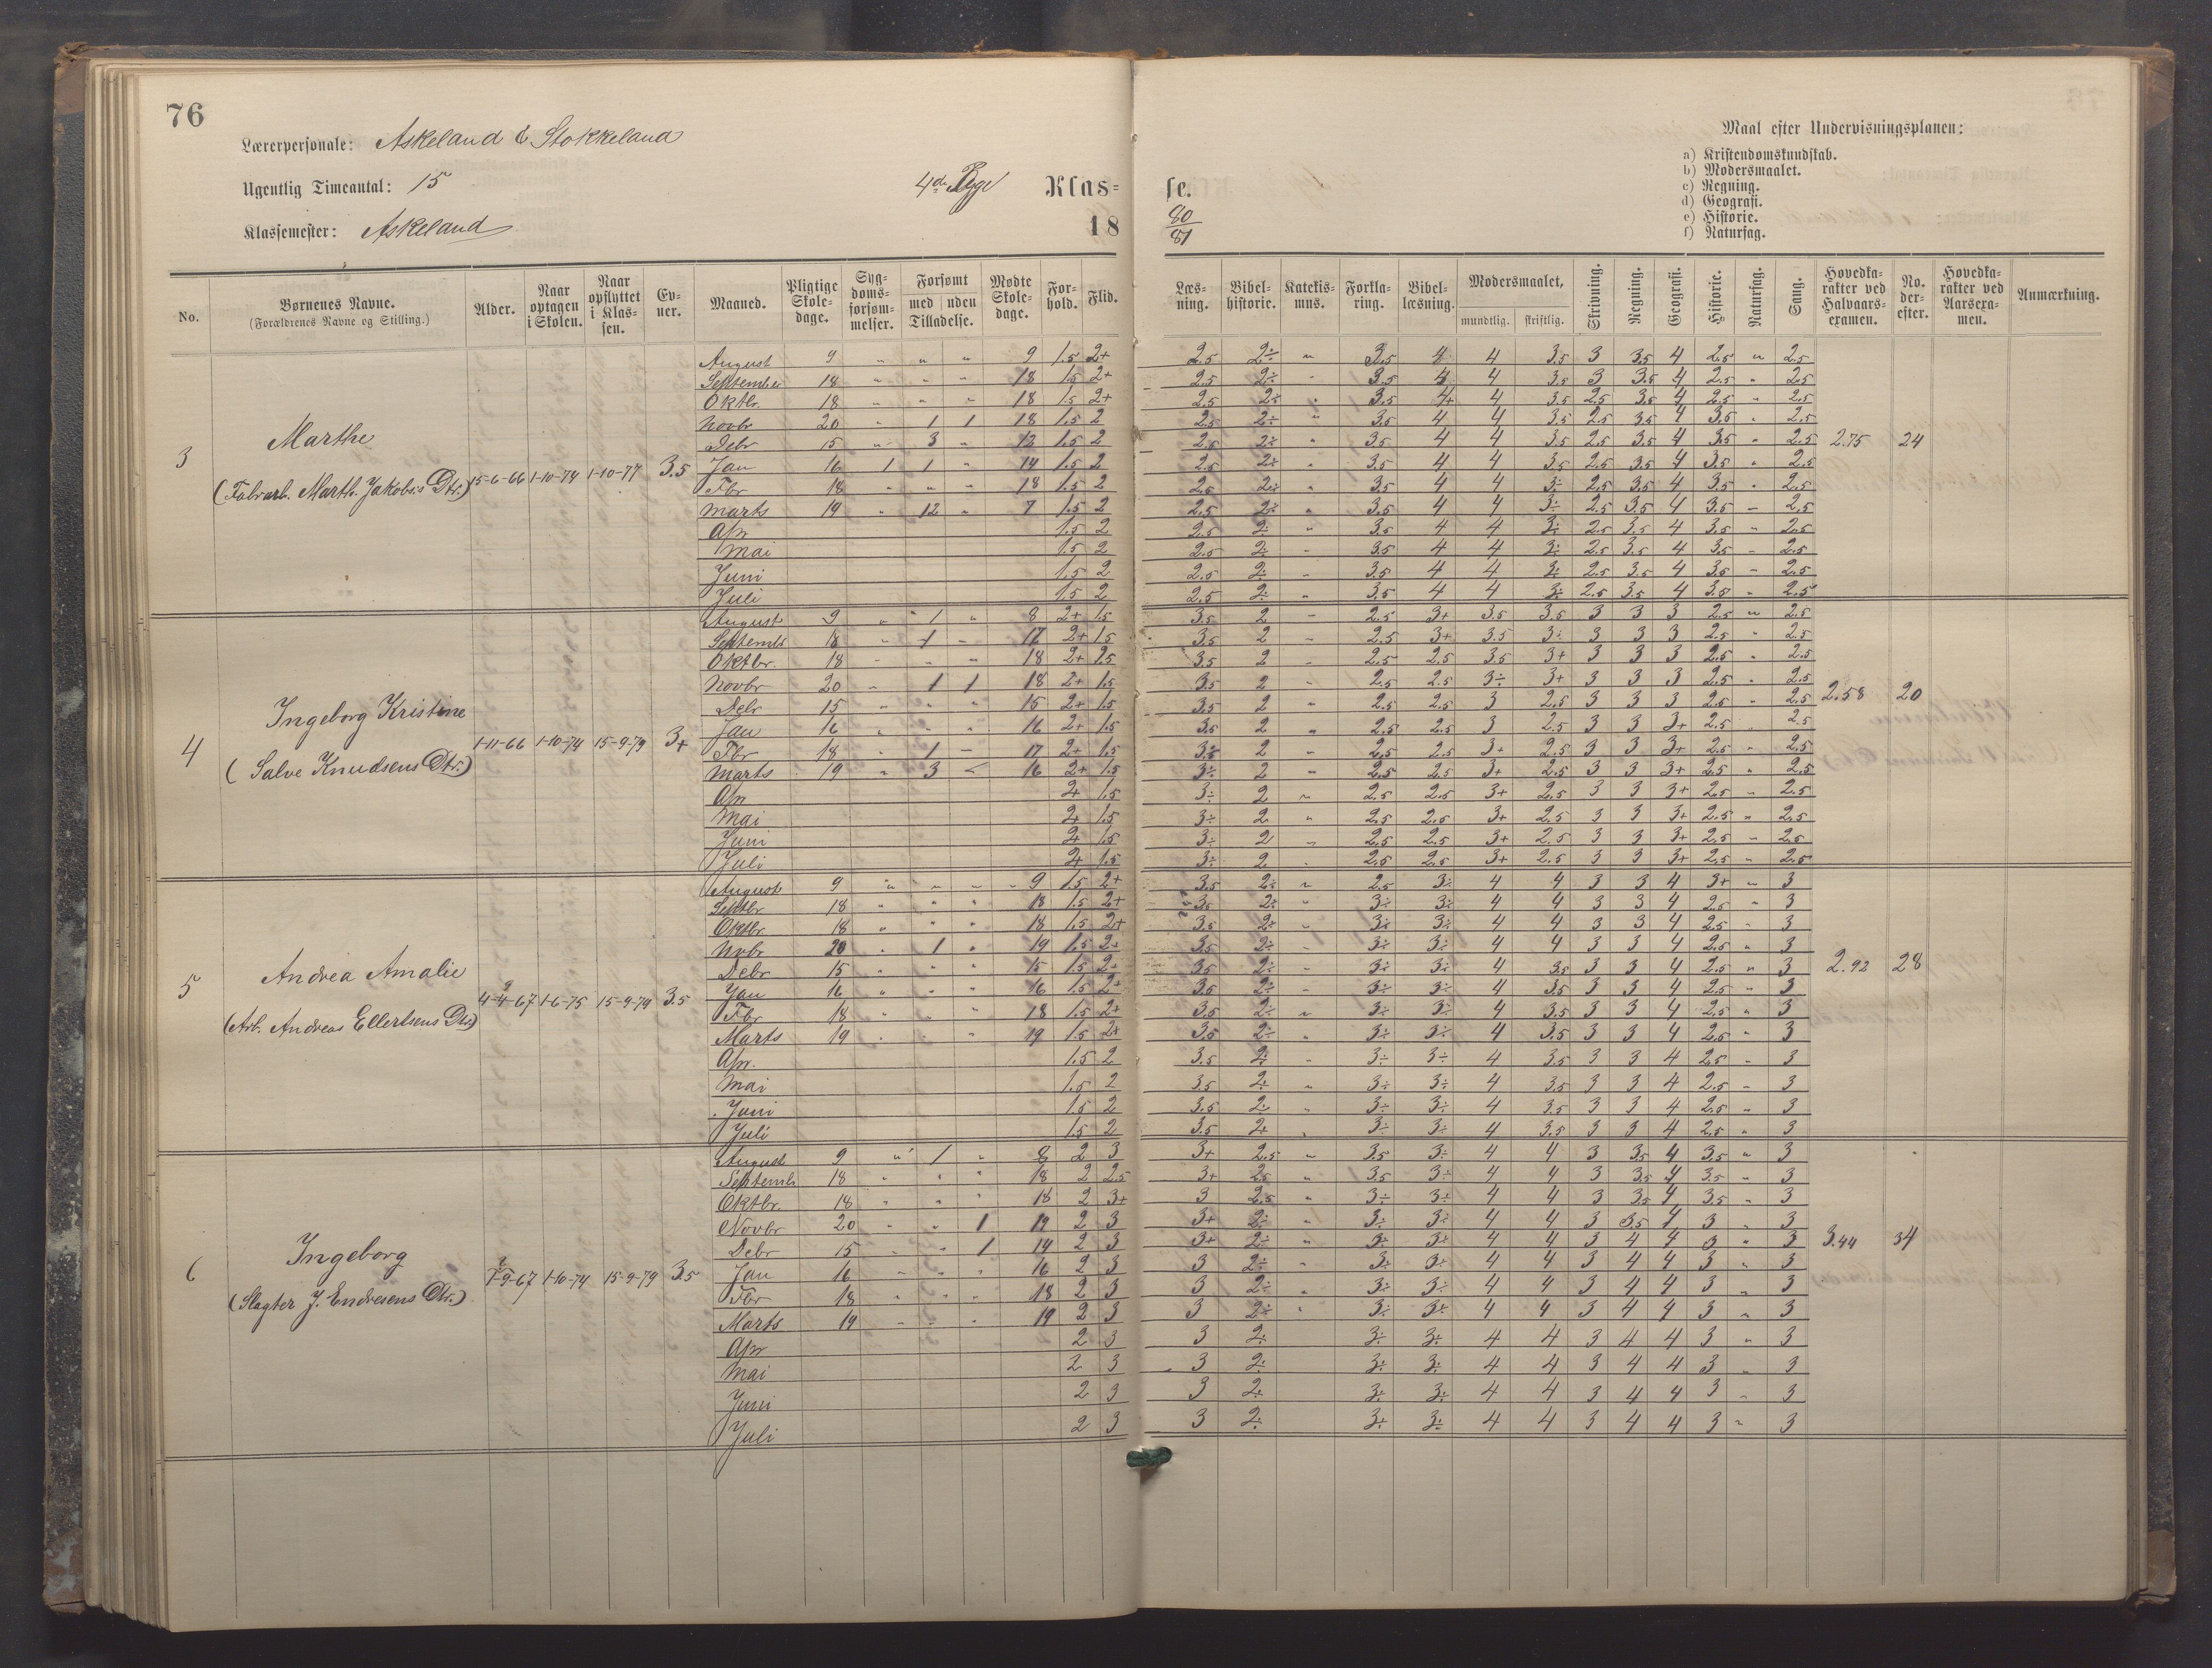 76
Lærerpersonale: Askeland & Stokkeland
Ugentlig Timeantal: 15
4de Pige Klas-
Klassemester: Askeland
18
se.
80
81
Maal efter Undervisningsplanen:
a) Kristendomskundskab.
b) Modersmaalet.
c) Regning.
d) Geografi.
e) Historie.
f) Naturfag.
No. Børnenes Navne. (Forældrenes Navne og Stilling.) Alder. Naar optagen i Skolen. Naar opflyttet i Klassen. Evner. Maaned. Pligtige Skoledage. Sygdomsforsømmelser. Forsømt med uden Tilladelse. Mødte Skoledage. Forhold. Flid.
Læsning. Bibelhistorie. Katekismus. Forklaring. Bibellæsning. Modersmaalet, mundtlig. skriftlig. Skrivning. Regning. Geografi. Historie. Naturfag. Sang. Hovedkarakter ved Halvaarsexamen. No. derefter. Hovedkarakter ved Aarsexamen. Anmærkning.
3
Marthe
(Fabrarb. Marth. Jakobs.s Dtr.) 15-6-66 1-10-74 1-10-77 3.5
August 9 " " " 9 1.5 2+ 2.5 2÷ " 3.5 4 4 3.5 3 3.5 4 2.5 " 2.5
September 18 " " " 18 1.5 2+ 2.5 2÷ " 3.5 4 4 3.5 3 3.5 4 2.5 " 2.5
Oktbr. 18 " " " 18 1.5 2+ 2.5 2÷ " 3.5 4+ 4 3.5 2.5 3.5 4 2.5 " 2.5
Novbr 20 " 1 1 18 1.5 2 2.5 2÷ " 3.5 4 4 3.5 2.5 3.5 4 3.5 " 2.5
Debr 15 " 3 " 12 1.5 2 2.5 2÷ " 3.5 4 4 3.5 2.5 3.5 4 3.5 " 2.5 2.75 24
Jan 16 1 1 " 14 1.5 2 2.5 2÷ " 3.5 4 4 3.5 2.5 3.5 4 3.5 " 2.5
Fbr 18 " " " 18 1.5 2 2.5 2÷ " 3.5 4 4 3÷ 2.5 3.5 4 3.5 " 2.5
Marts 19 " 12 " 7 1.5 2 2.5 2÷ " 3.5 4 4 3÷ 2.5 3.5 4 3.5 " 2.5
Apr 1.5 2 2.5 2÷ " 3.5 4 4 3÷ 2.5 3.5 4 3.5 " 2.5
Mai 1.5 2 2.5 2÷ " 3.5 4 4 3÷ 2.5 3.5 4 3.5 " 2.5
Juni 1.5 2 2.5 2÷ " 3.5 4 4 3÷ 2.5 3.5 4 3.5 " 2.5
Juli 1.5 2 2.5 2÷ " 3.5 4 4 3÷ 2.5 3.5 4 3.5 " 2.5
4
Ingeborg Kristine
(Salve Knudsens Dtr.) 1-11-66 1-10-74 15-9-79 3+
August 9 " 1 " 8 2+ 1.5 3.5 2 " 2.5 3+ 3.5 3.5 3 3 3 2.5 " 2.5
Septembr 18 " 1 " 17 2+ 1.5 3.5 2 " 2.5 3+ 3.5 3÷ 3 3 3 2.5 " 2.5
Oktbr. 18 " " " 18 2+ 1.5 3.5 2 " 2.5 2.5 3.5 3+ 3 3 3 2.5 " 2.5
Novbr 20 " 1 1 18 2+ 1.5 3.5 2 " 2.5 2.5 3÷ 3+ 3 3 3 2.5 " 2.5
Debr 15 " " " 15 2+ 1.5 3.5 2 " 2.5 2.5 3 2.5 3 3 3 2.5 " 2.5 2.58 20
Jan 16 " " " 16 2+ 1.5 3.5 2 " 2.5 2.5 3 2.5 3 3 3+ 2.5 " 2.5
Fbr 18 " 1 " 17 2+ 1.5 3÷ 2 " 2.5 2.5 3+ 2.5 3 3 3+ 2.5 " 2.5
Marts 19 " 3 " 16 2+ 1.5 3÷ 2 " 2.5 2.5 3+ 2.5 3 3 3+ 2.5 " 2.5
Apr 2+ 1.5 3÷ 2 " 2.5 2.5 3+ 2.5 3 3 3+ 2.5 " 2.5
Mai 2+ 1.5 3÷ 2 " 2.5 2.5 3+ 2.5 3 3 3+ 2.5 " 2.5
Juni 2+ 1.5 3÷ 2 " 2.5 2.5 3+ 2.5 3 3 3+ 2.5 " 2.5
Juli 2+ 1.5 3÷ 2 " 2.5 2.5 3+ 2.5 3 3 3+ 2.5 " 2.5
5
Andrea Amalie
(Arb. Andreas Ellertsens Dtr) 4-4-67 1-6-75 15-9-79 3.5
August 9 " " " 9 1.5 2+ 3.5 2÷ " 2.5 3÷ 4 4 3 3 4 3+ " 3
Septbr 18 " " " 18 1.5 2+ 3.5 2÷ " 3÷ 3÷ 4 4 3 3 4 2.5 " 3
Oktbr. 18 " " " 18 1.5 2+ 3.5 2÷ " 3÷ 3÷ 4 4 3 3 4 2.5 " 3
Novbr 20 " 1 " 19 1.5 2+ 3.5 2÷ " 3÷ 3÷ 4 4 3 3 4 2.5 " 3
Debr 15 " " " 15 1.5 2+ 3.5 2÷ " 3÷ 3÷ 4 3.5 3 3 4 2.5 " 3 2.92 28
Jan 16 " " " 16 1.5 2+ 3.5 2÷ " 3÷ 3÷ 4 3.5 3 3 4 2.5 " 3
Fbr 18 " " " 18 1.5 2+ 3.5 2÷ " 3÷ 3÷ 4 3.5 3 3 4 2.5 " 3
Marts 19 " " " 19 1.5 2+ 3.5 2÷ " 3÷ 3÷ 4 3.5 3 3 4 2.5 " 3
Apr. 1.5 2 3.5 2÷ " 3÷ 3÷ 4 3.5 3 3 4 2.5 " 3
Mai 1.5 2 3.5 2÷ " 3÷ 3÷ 4 3.5 3 3 4 2.5 " 3
Juni 1.5 2 3.5 2÷ " 3÷ 3÷ 4 3.5 3 3 4 2.5 " 3
Juli 1.5 2 3.5 2÷ " 3÷ 3÷ 4 3.5 3 3 4 2.5 " 3
6
Ingeborg
(Slagter J. Endresens Dtr.) 1-9-67 1-10-74 15-9-79 3.5
August 9 " 1 " 8 2 3 3+ 2.5 " 3.5 3÷ 4 4 3 3.5 4 3.5 " 3
Septemb. 18 " " " 18 2 2.5 3+ 2.5 " 3.5 3÷ 4 4 3 3.5 4 3.5 " 3
Oktbr. 18 " " " 18 2 3+ 3 2.5 " 3÷ 3÷ 4 4 3 3.5 4 3.5 " 3
Novbr 20 " " 1 19 2 3 3+ 2÷ " 3÷ 3÷ 4 4 3 3.5 4 3 " 3
Debr 15 " " 1 14 2 3 3+ 2÷ " 3÷ 3÷ 4 4 3 4 4 3 " 3 3.44 34
Jan 16 " " " 16 2 3 3 2÷ " 3÷ 3÷ 4 4 3 4 4 3 " 3
Fbr 18 " " " 18 2 3 3 2÷ " 3÷ 3÷ 4 4 3 4 4 3 " 3
Marts 19 " " " 19 2 3 3 2÷ " 3÷ 3÷ 4 4 3 4 4 3 " 3
Apr 2 3 3 2÷ 3÷ 3÷ 4 4 3 4 4 3 " 3
Mai 2 3 3 2÷ 3÷ 3÷ 4 4 3 4 4 3 " 3
Juni 2 3 3 2÷ 3÷ 3÷ 4 4 3 4 4 3 " 3
Juli 2 3 3 2÷ 3÷ 3÷ 4 4 3 4 4 3 " 3